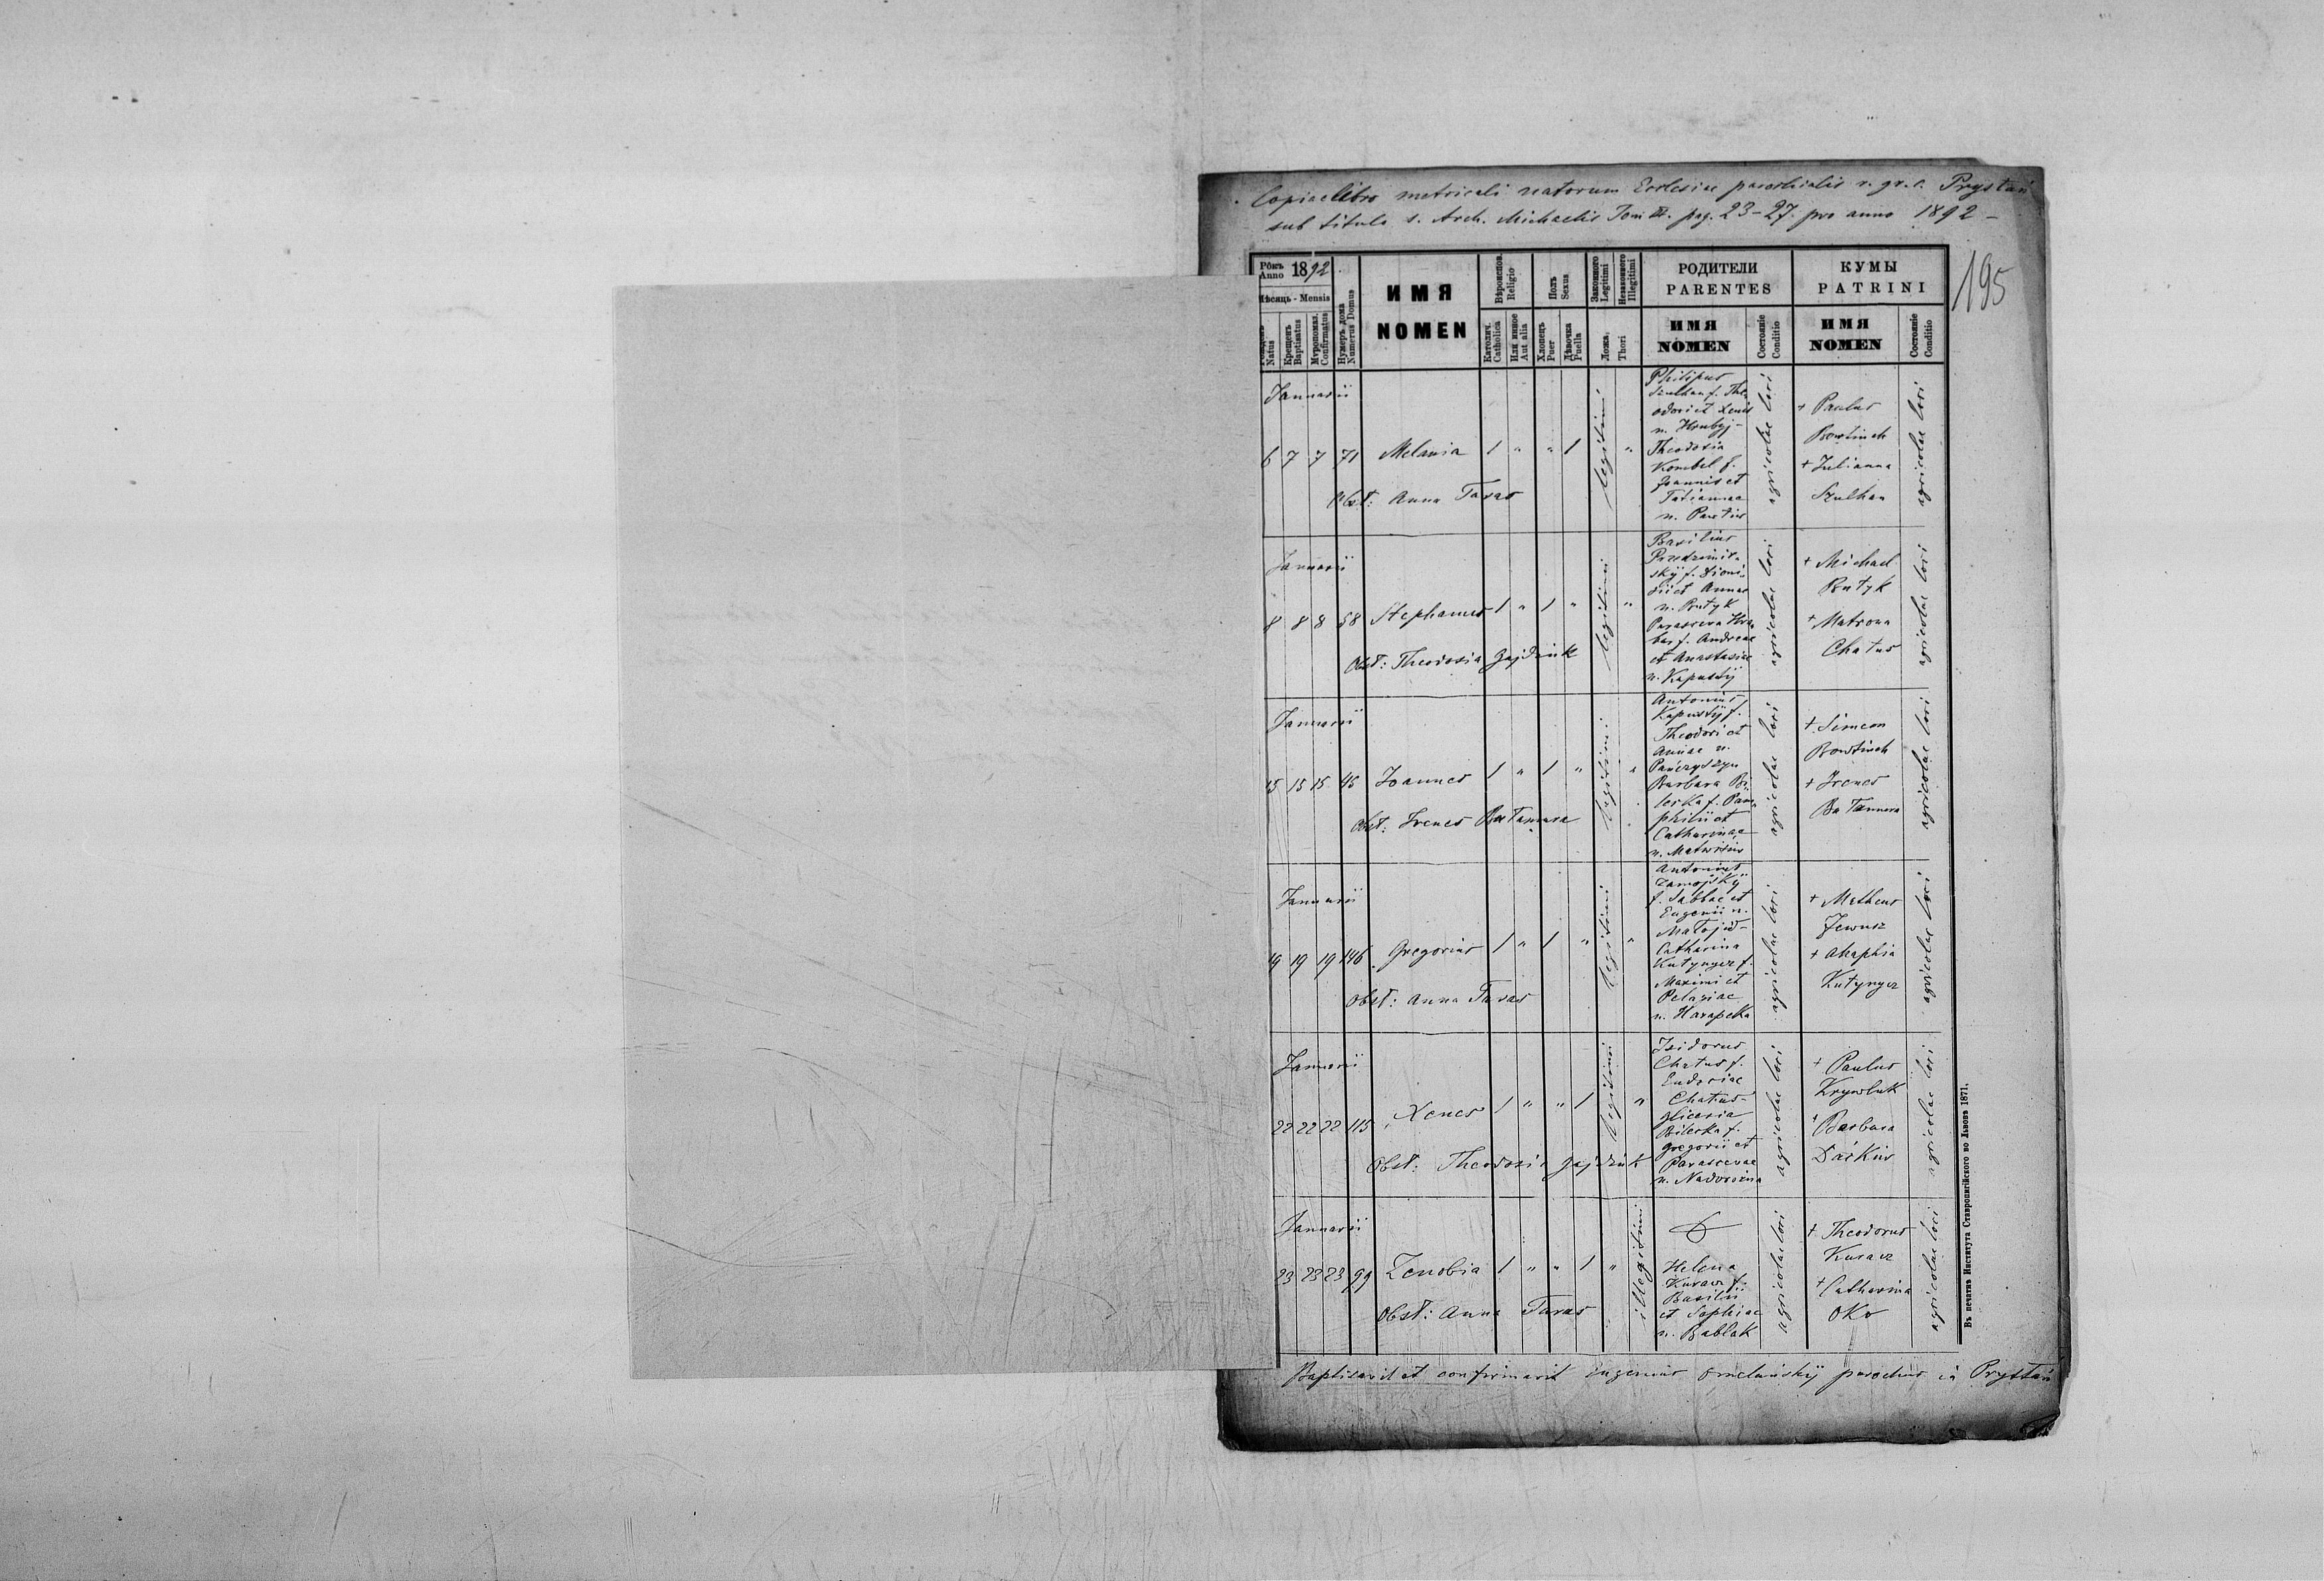 Copia e libro metricali natorum Ecclesiae parochialis r. gr. c. Prystań
sub titulo s. Arch. Michaelis Tom III. pag. 23-27. pro anno 1892 -
195
Рôкъ
Anno 1892
Мѣсяць - Mensis
Natus
Крещенъ
Baptisatus
Мѵропомаз.
Confirmatus
Нумеръ дома
Numerus Domus
ИМЯ
NOMEN
Вѣроиспов.
Religio
Католич.
Catholica
Или инное
Aut alia
Полъ
Sexus
Хлопець
Puer
Дѣвочка
Puella
Законного
Legitimi
Незаконного
Illegitimi
Ложа.
Thori
РОДИТЕЛИ
PARENTES
ИМЯ
NOMEN
Состояніе
Conditio
КУМЫ
PATRINI
ИМЯ
NOMEN
Состояніе
Conditio
Januarii
6 7 7 71 Melania 1 " " 1 legitimi "
Obst: Anna Taras
Philipus
Szulhan f. The-
odori et Xeniae
n. Hrubyj -
Theodosia
Kombel f.
Joannis et
Tatiannae
n.
agricolae loci
+ Paulus
Bowtinch
+ Julianna
Szulhan
agricolae loci
Januarii
8 8 8 58 Stephanus 1 " 1 " legitimi "
Obst: Theodosia Gajdziuk
Basilius
skÿ f. Dioni-
sii et Annae
n. Rutyk
Parasceva Hra-
bas f. Andreae
et Anastasiae
n. Kapustij
agricolae loci
+ Michael
Rutyk
+ Matrona
Chatus
agricolae loci
Januarii
15 15 15 45 Joannes 1 " 1 " legitimi "
Obst: Irenes Butamara
Antonius
Kapustÿ f.
Theodori et
Annae n.
Panczyszyn
Barbara Bi-
lecka f. Pam-
philii et
Catharinae
n.
agricolae loci
+ Simeon
Bowtinch
+ Irenes
agricolae loci
Januarii
19 19 19 146 Gregorius 1 " 1 " legitimi "
Obst: Anna Taras
Antonius
Zamojskÿ
f. Sabbae et
Eugenii n.
Matojid -
Catharina
Kutynger f.
Maximi et
Pelagiae
n. Harapeka
agricolae loci
+ Matheus
Jewusz
+ Ahaphia
Kutynger
agricolae loci
Januarii
22 22 22 115 Xenes 1 " " 1 legitimi "
Obst: Theodosia Gajdziuk
Isidorus
Chatus f.
Eudociae
Chatus -
Gliceria
Bilecka f.
Gregorii et
Parascevae
n.
agricolae loci
+ Paulus
Krywluk
+ Barbara
Daćkiw
agricolae loci
Januarii
23 23 23 99 Zenobia 1 " " 1 " illegitimi
Obst: Anna Taras
Helena
Kuracz f.
Basilii
et Sophiae
n. Bablak
agricolae loci
+ Theodorus
Kuracz
+ Catharina
Oko
agricolae loci
Baptisavit et confirmavit Eugenius Omelańskÿ parochus in Prystań
Въ печатнѣ Института Ставропигійского во Львовѣ 1871.